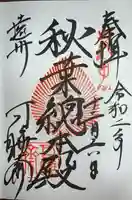 奉拝
令和二年
十二月六日
秋葉総本殿
遠州
可睡斎